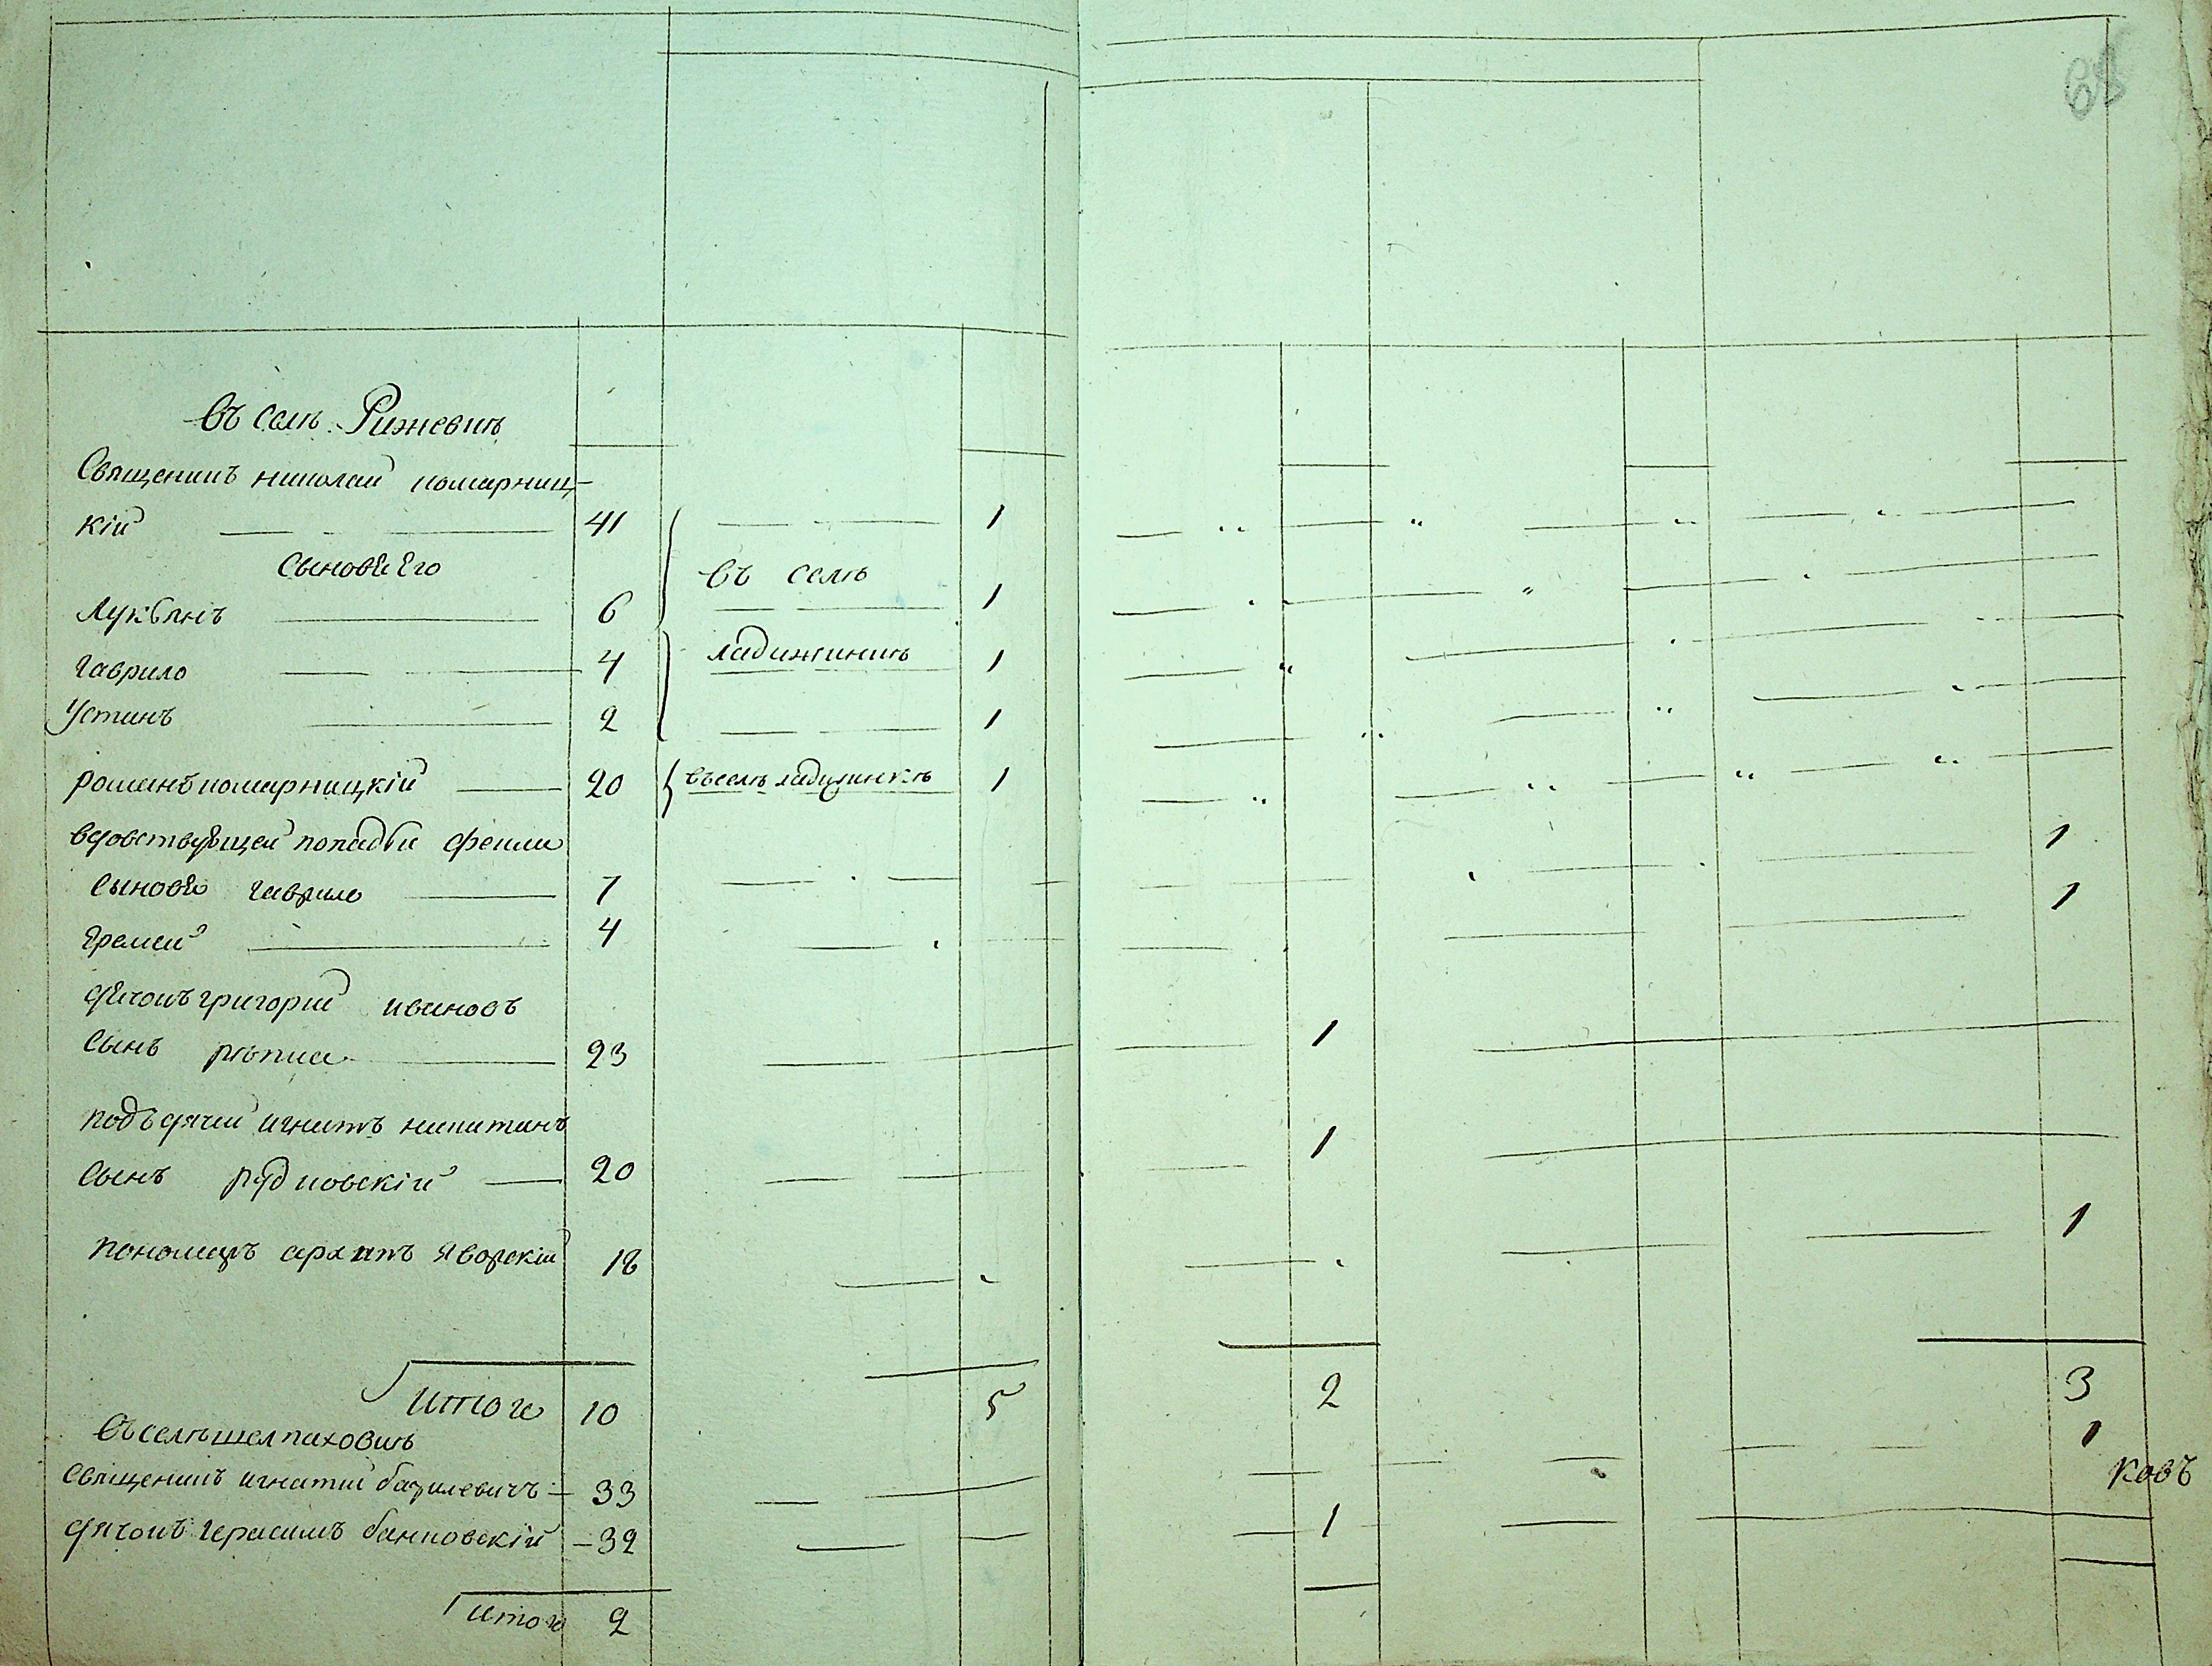 68
въ селѣ Рижевкѣ
Священикъ николай комарниц-
кій 41 1
Сыновѣ Его въ селѣ
Лукьянъ 6 1
гаврило 4 ладижинкѣ 1
Устинъ 2 1
романъ комарницкій 20 въ селѣ ладижинкѣ 1
вдовствующей попадьи феклы
сыновѣ гаврило 7 1
Еремей 4 1
дячокъ григорій ивановъ
сынъ рѣпка 23 1
подъдячій игнатъ никитинъ
сынъ рудковскій 20 1
пономаръ архипъ Яворскій 18 1
итого 10 5 2 3
въ селѣ шелпаховкѣ
священикъ игнатій базилевичъ 33 1
дячокъ герасимъ банковскій 32 1
итого 2
ковъ